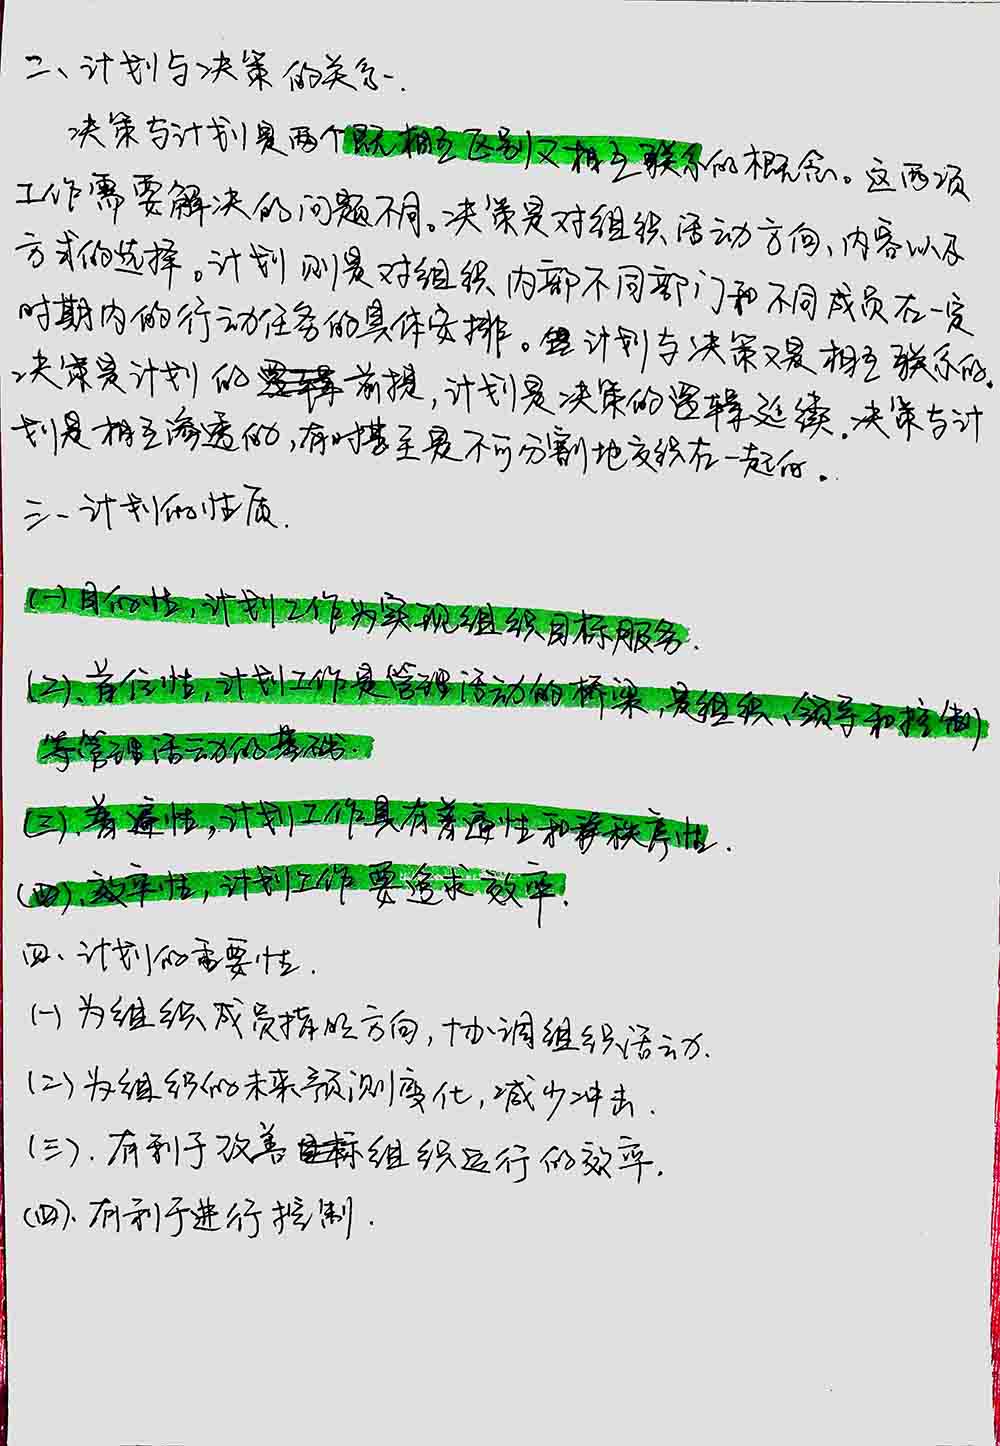 二、计划与决策的关系.
决策与计划是两个既相互区别又相互联系的概念。这两项
工作需要解决的问题不同。决策是对组织活动方向、内容以及
方式的选择。计划则是对组织内部不同部门和不同成员在一定
时期内的行动任务的具体安排。计划与决策又是相互联系的。
决策是计划的前提，计划是决策的逻辑延续。决策与计
划是相互渗透的，有时甚至是不可分割地交织在一起的。
三、计划的性质.
(一)目的性，计划工作为实现组织目标服务.
(二)、首位性，计划工作是管理活动的桥梁，是组织、领导和控制
等管理活动的基础.
(三)、普遍性，计划工作具有普遍性和秩序性.
(四)、效率性，计划工作要追求效率.
四、计划的重要性.
(一)为组织成员指明方向，协调组织活动.
(二)为组织的未来预测变化，减少冲击.
(三)、有利于改善组织运行的效率.
(四)、有利于进行控制.